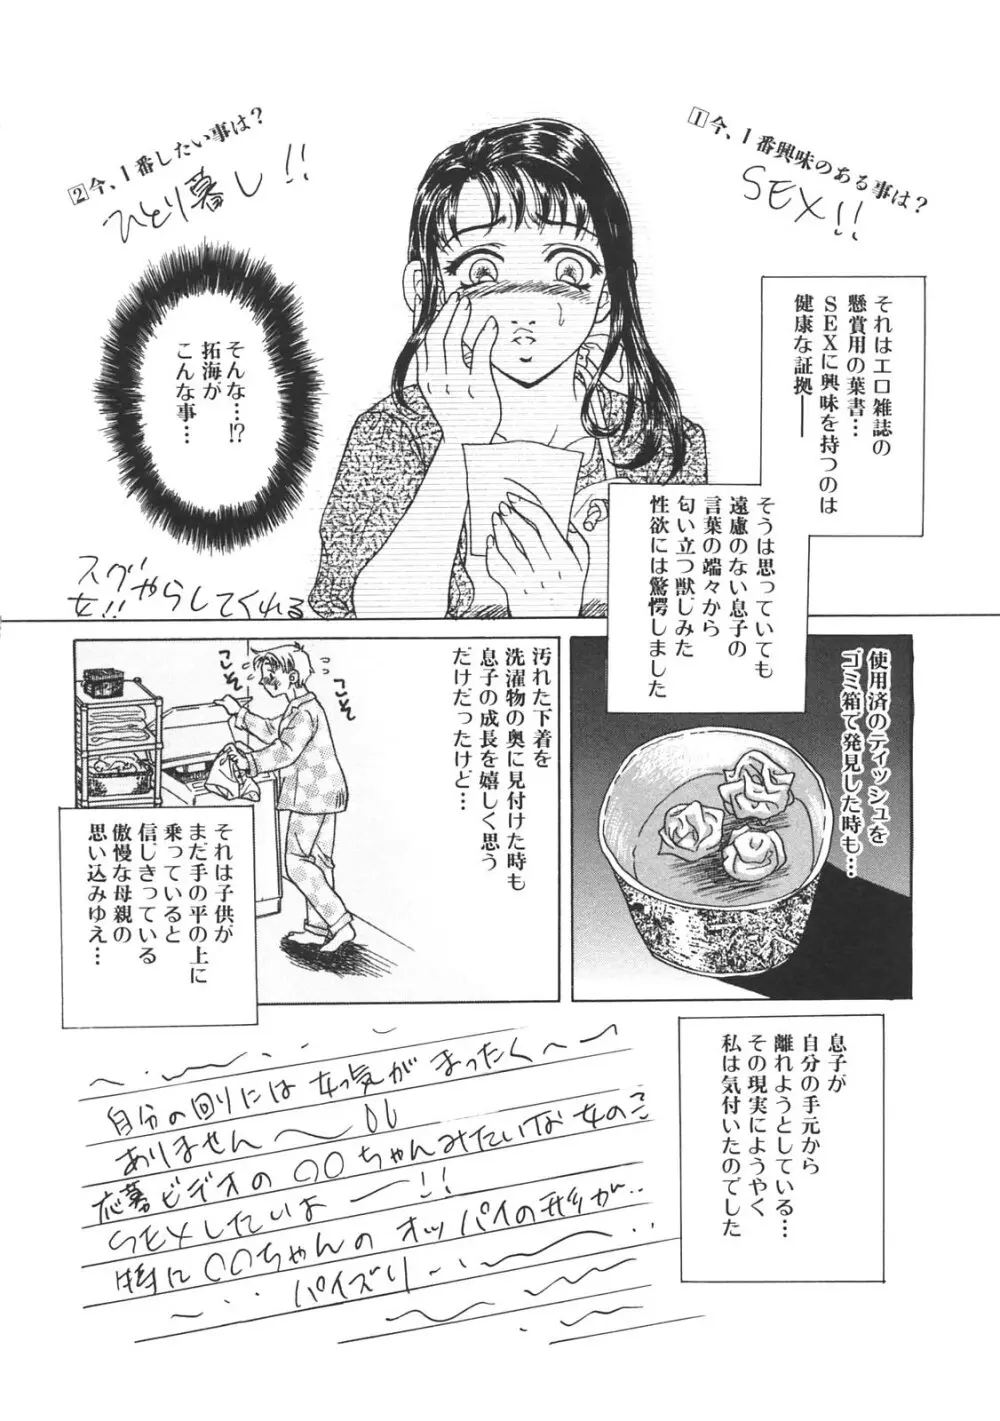 1今、1番興味のある事は?
SEX!!
2今、1番したい事は?
ひとり暮し!!
それはエロ雑誌の
懸賞用の葉書…
SEXに興味を持つのは
健康な証拠――
そんな…!?
拓海が
こんな事…
そうは思っていても
遠慮のない息子の
言葉の端々から
匂い立つ獣じみた
性欲には驚愕しました
スグやらしてくれる
女!!
使用済のティッシュを
ゴミ箱で発見した時も…
汚れた下着を
洗濯物の奥に見付けた時も
息子の成長を嬉しく思う
だけだったけど…
こそ
こそ
それは子供が
まだ手の平の上に
乗っていると
信じきっている
傲慢な母親の
思い込みゆえ…
息子が
自分の手元から
離れようとしている…
その現実にようやく
私は気付いたのでした
自分の回りには女っ気がまったく
ありません
応募ビデオの○○ちゃんみたいな女のこ
SEXしたいよー!!
特に○○ちゃんのオッパイの形が‥
パイズリ